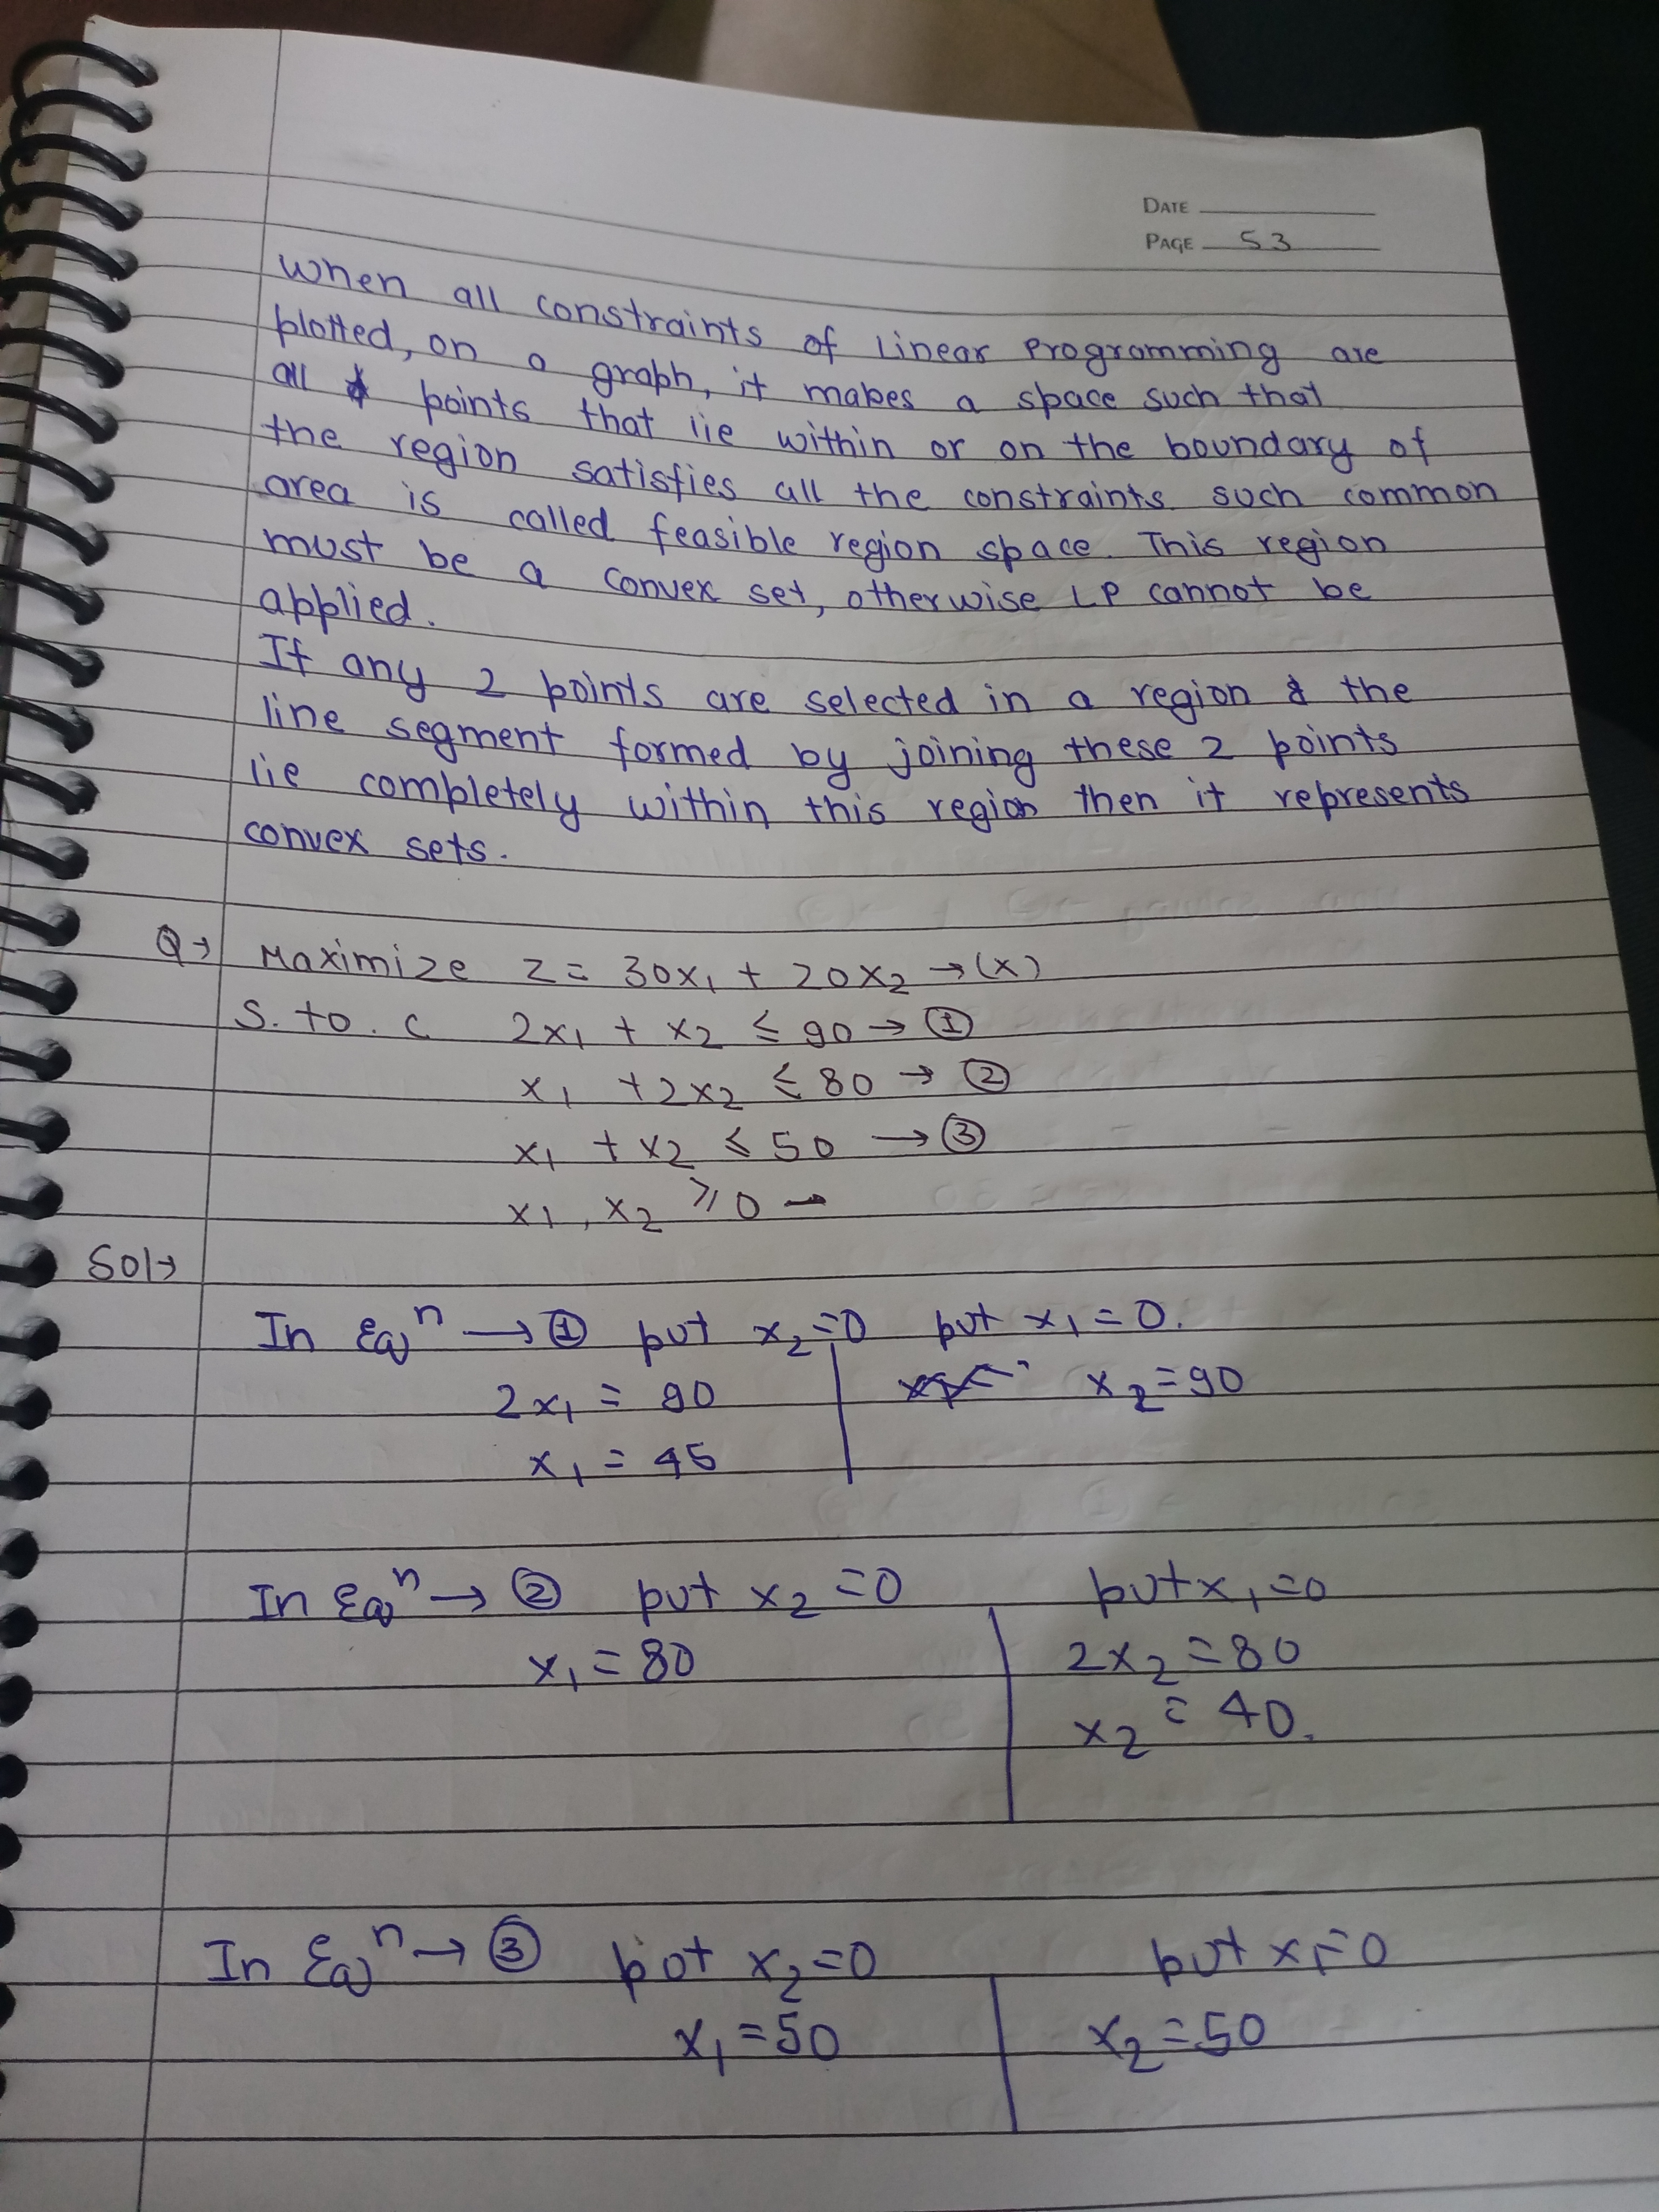 DATE
PAGE 53
When all constraints of Linear Programming are
plotted, on a graph, it makes a space such that
all points that lie within or on the boundary of
the region satisfies all the constraints. such common
area is called feasible region space. This region
must be a convex set, otherwise LP cannot be
applied.
If any 2 points are selected in a region & the
line segment formed by joining these 2 points
lie completely within this region then it represents
convex sets.
Q→ Maximize Z = 30x₁ + 20x₂ → (x)
S. to. c 2x₁ + x₂ ≤ 90 → ①
x₁ + 2x₂ ≤ 80 → ②
x₁ + x₂ ≤ 50 → ③
x₁, x₂ ≥ 0 →
Sol→
In Eqⁿ → ① put x₂=0 put x₁=0.
2x₁ = 90 x₂=90
x₁ = 45
In Eqⁿ → ② put x₂=0 put x₁=0
x₁ = 80 2x₂ = 80
x₂ = 40.
In Eqⁿ → ③ put x₂=0 put x₁=0
x₁ = 50 x₂ = 50